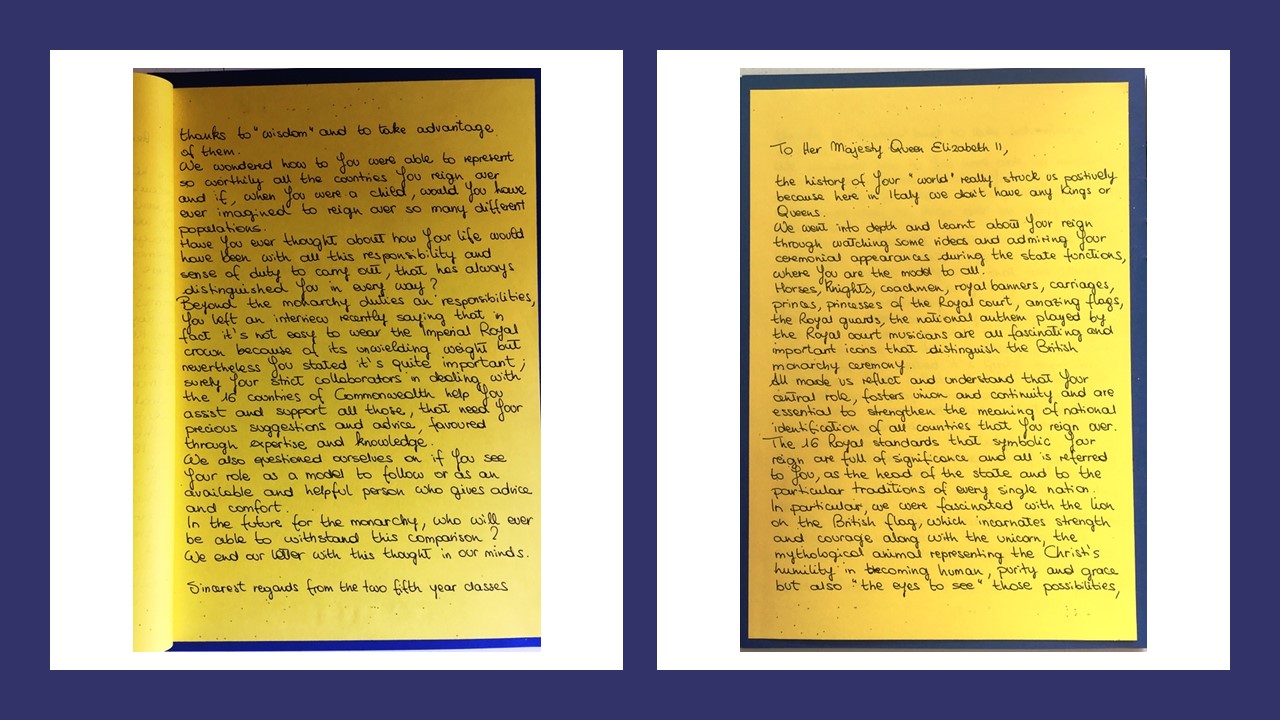 To Her Majesty Queen Elizabeth II,
the history of Your "world" really struck us positively
because here in Italy we don't have any Kings or
Queens.
We went into depth and learnt about Your reign
through watching some videos and admiring Your
ceremonial appearances during the state functions,
where You are the model to all.
Horses, Knights, coachmen, royal banners, carriages,
princes, princesses of the Royal court, amazing flags,
the Royal guards, the national anthem played by
the Royal court musicians are all fascinating and
important icons that distinguish the British
monarchy ceremony.
All made us reflect and understand that Your
central role, fosters union and continuity and are
essential to strengthen the meaning of national
identification of all countries that You reign over.
The 16 Royal standards that symbolic Your
reign are full of significance and all is referred
to You, as the head of the state and to the
particular traditions of every single nation.
In particular, we were fascinated with the lion
on the British flag, which incarnates strength
and courage along with the unicorn, the
mythological animal representing the Christ's
humility in becoming human, purity and grace
but also "the eyes to see" those possibilities,
thanks to "wisdom" and to take advantage
of them.
We wondered how to You were able to represent
so worthily all the countries You reign over
and if, when You were a child, would You have
ever imagined to reign over so many different
populations.
Have You ever thought about how Your life would
have been with all this responsibility and
sense of duty to carry out, that has always
distinguished You in every way?
Beyond the monarchy duties an' responsibilities,
You left an interview recently saying that in
fact it's not easy to wear the Imperial Royal
crown because of its unwielding weight but
nevertheless You stated it's quite important;
surely Your strict collaborators in dealing with
the 16 countries of Commonwealth help You
assist and support all those, that need Your
precious suggestions and advice, favoured
through expertise and knowledge.
We also questioned ourselves on if You see
Your role as a model to follow or as an
available and helpful person who gives advice
and comfort.
In the future for the monarchy, who will ever
be able to withstand this comparison?
We end our letter with this thought in our minds.
Sincerest regards from the two fifth year classes